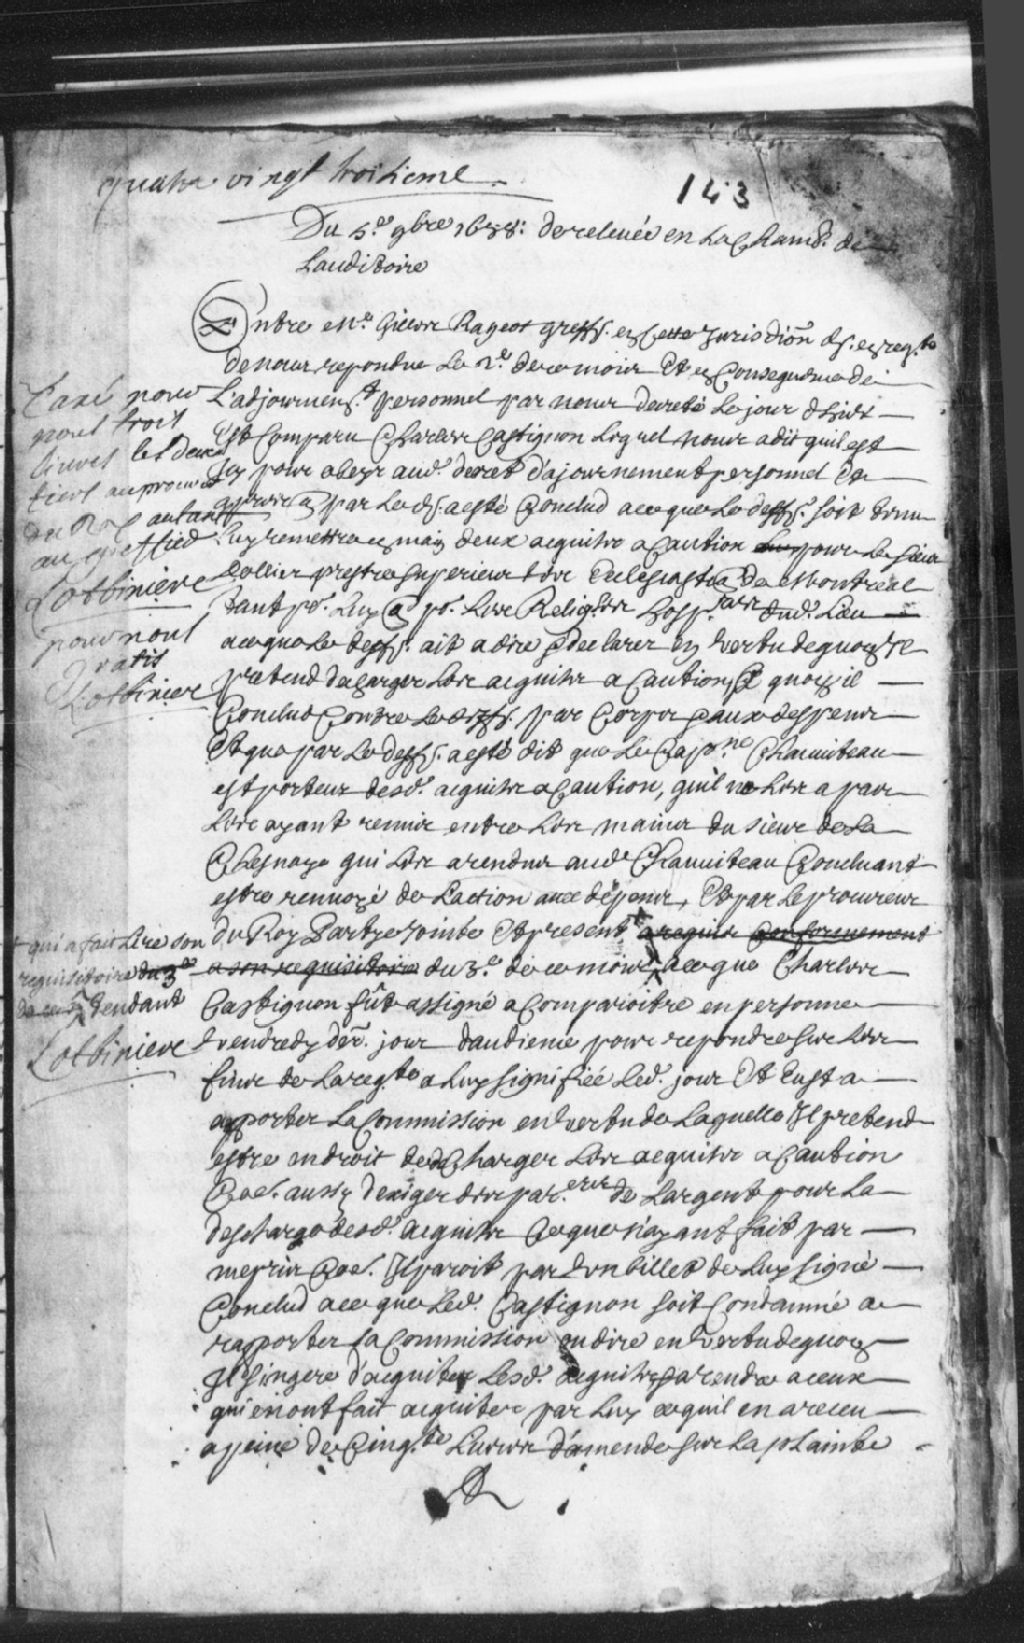 quatre vingt troisieme
143
Du 5.e 9bre 1688: de relevée en La Chamb. de
Lauditoire
Entre Me. Gilles Rageot greff. en cette Jurisdiõn d. en req.te
de nous repondue Le 2.e de ce mois Et en Consequence de
L'adjournem.t personnel par nous decreté Le jour d'hier
Est Comparu Charles Castignon Lequel nous a dit quil est
Icy pour obeyr aud. decret d'ajournement personnel Et
apres q par Led. a esté Conclud a ce que Le deff. soit tenu
luy remettre es mains deux acquits a Caution pour Le sieur
Dollier prestre superieur des Eclesiastiq. de Montreal
Tant po. Luy q po. Les Relig.ses hosp.res dud. Lieu
a ce que Le deff. ait a dire & declarer en vertu de quoy Il
pretend descharger Les acquits a Caution, & quoy il
Conclud Contre Le deff. par Corps & aux despens
Et que par Le deff. a esté dit que Le Cap.ne Chauviteau
est porteur desd. acquits a Caution, quil ne Les a pas
Les ayant remis entre Les mains du sieur de La
Chesnaye qui Les a rendus aud. Chauviteau Concluant
estre renvoyé de L'action aux dépens, Et par Le procureur
du Roy Partye Jointe Et present a requis Conformement
a son requisitoire du 3.e de ce mois a ce que Charles
Castignon fût assigné a Comparoitre en personne
vendredy der. jour d'audience pour repondre sur Les
fins de La req.te a Luy signifiée Led. jour Et Eust a
apporter La Commission en vertu de Laquelle Il pretend
estre en droit de descharger Les acquits a Caution
Et aussy d'exiger des par.ers de L'argent pour La
descharge desd. acquits Ce que n'ayant fait par
mepris Il paroit par un billet de Luy signé
Conclud a ce que Led. Castignon soit Condamné a
rapporter sa Commission ou dire en vertu de quoy
Il s'ingere d'acquiter Lesd. acquits & a rendre a ceux
qui en ont fait acquiter par Luy ce quil en a receu
a peine de Cinq.te Livres d'amende sur La plainte
Taxé pour
nous trois
livres les deux
tiers au procureur
du Roy autant
au greffier
Lotbiniere
pour nous
Gratis
Lotbiniere
+ qui a fait Lire son
requisitoire du 3.e
tendant
Lotbiniere